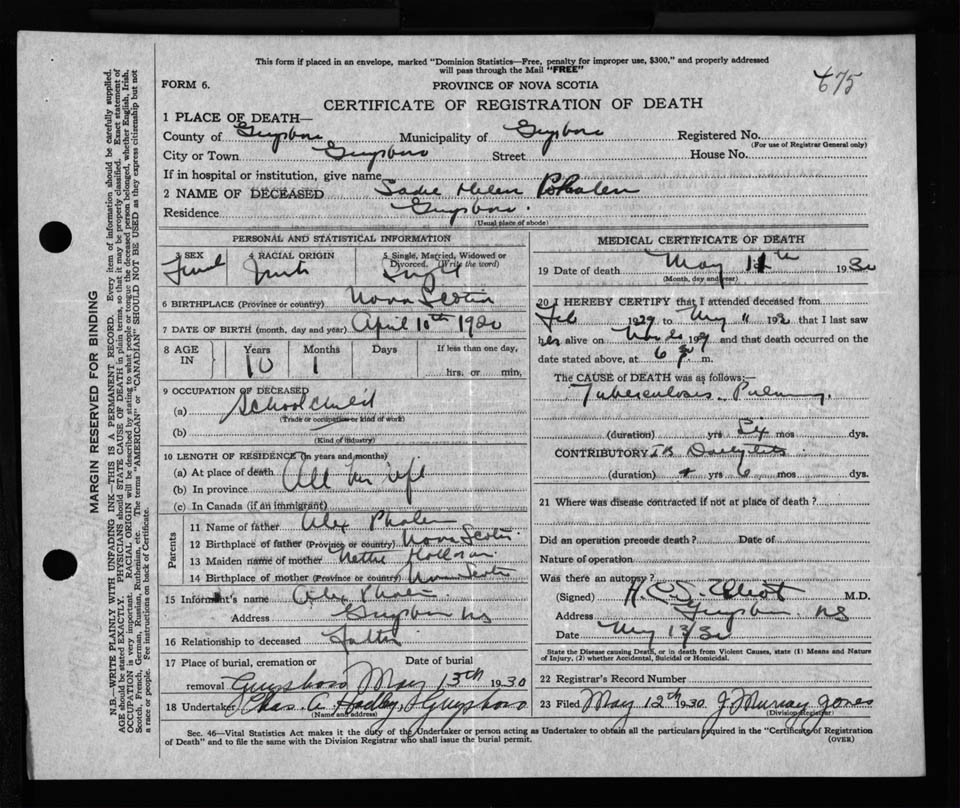 This form if placed in an envelope, marked "Dominion Statistics—Free, penalty for improper use, $300," and properly addressed
will pass through the Mail "FREE"
675
FORM 6.
PROVINCE OF NOVA SCOTIA
CERTIFICATE OF REGISTRATION OF DEATH
1 PLACE OF DEATH—
County of Guysboro Municipality of Guysboro Registered No.
(For use of Registrar General only)
City or Town Guysboro Street House No.
If in hospital or institution, give name
2 NAME OF DECEASED Sadie Helen Phalen
Residence Guysboro
(Usual place of abode)
PERSONAL AND STATISTICAL INFORMATION
3 SEX 4 RACIAL ORIGIN 5 Single, Married, Widowed or
Divorced. (Write the word)
Single
6 BIRTHPLACE (Province or country) Nova Scotia
7 DATE OF BIRTH (month, day and year) April 10th 1920
8 AGE IN Years Months Days If less than one day,
10 1 hrs. or min,
9 OCCUPATION OF DECEASED
(a) School child
(Trade or occupation or kind of work)
(b)
(Kind of industry)
10 LENGTH OF RESIDENCE (in years and months)
(a) At place of death All her life
(b) In province
(c) In Canada (if an immigrant)
Parents
11 Name of father Alex Phalen
12 Birthplace of father (Province or country) Nova Scotia
13 Maiden name of mother Nettie
14 Birthplace of mother (Province or country) Nova Scotia
15 Informant's name Alex Phalen
Address Guysboro NS
16 Relationship to deceased Father
17 Place of burial, cremation or Date of burial
removal Guysboro May 13th 1930
18 Undertaker Chas. A. Hadley, Guysboro
(Name and address)
MEDICAL CERTIFICATE OF DEATH
19 Date of death May 11th 1930
(Month, day and year)
20 I HEREBY CERTIFY that I attended deceased from
Feb 1929 to May 11 1930 that I last saw
her alive on and that death occurred on the
date stated above, at 6 m.
The CAUSE of DEATH was as follows:—
Tuberculosis Pulmonary
(duration) yrs Six mos dys.
CONTRIBUTORY
(duration) yrs 6 mos dys.
21 Where was disease contracted if not at place of death?
Did an operation precede death? Date of
Nature of operation
Was there an autopsy?
(Signed) Elliot M.D.
Address Guysboro NS
Date May 13/30
State the Disease causing Death, or in death from Violent Causes, state (1) Means and Nature
of Injury, (2) whether Accidental, Suicidal or Homicidal.
22 Registrar's Record Number
23 Filed May 12th 1930 J Murray Jones
(Division Registrar)
Sec. 46—Vital Statistics Act makes it the duty of the Undertaker or person acting as Undertaker to obtain all the particulars required in the "Certificate of Registration
of Death" and to file the same with the Division Registrar who shall issue the burial permit. (OVER)
MARGIN RESERVED FOR BINDING
N.B.—WRITE PLAINLY WITH UNFADING INK—THIS IS A PERMANENT RECORD. Every item of information should be carefully supplied.
AGE should be stated EXACTLY. PHYSICIANS should STATE CAUSE OF DEATH in plain terms, so that it may be properly classified. Exact statement of
OCCUPATION is very important. RACIAL ORIGIN will be described by stating to what people or tongue the deceased person belonged, whether English, Irish,
Scotch, French, German, Russian, Ruthenian, etc. The terms "AMERICAN" or "CANADIAN" SHOULD NOT BE USED as they express citizenship but not
a race or people. See instructions on back of Certificate.